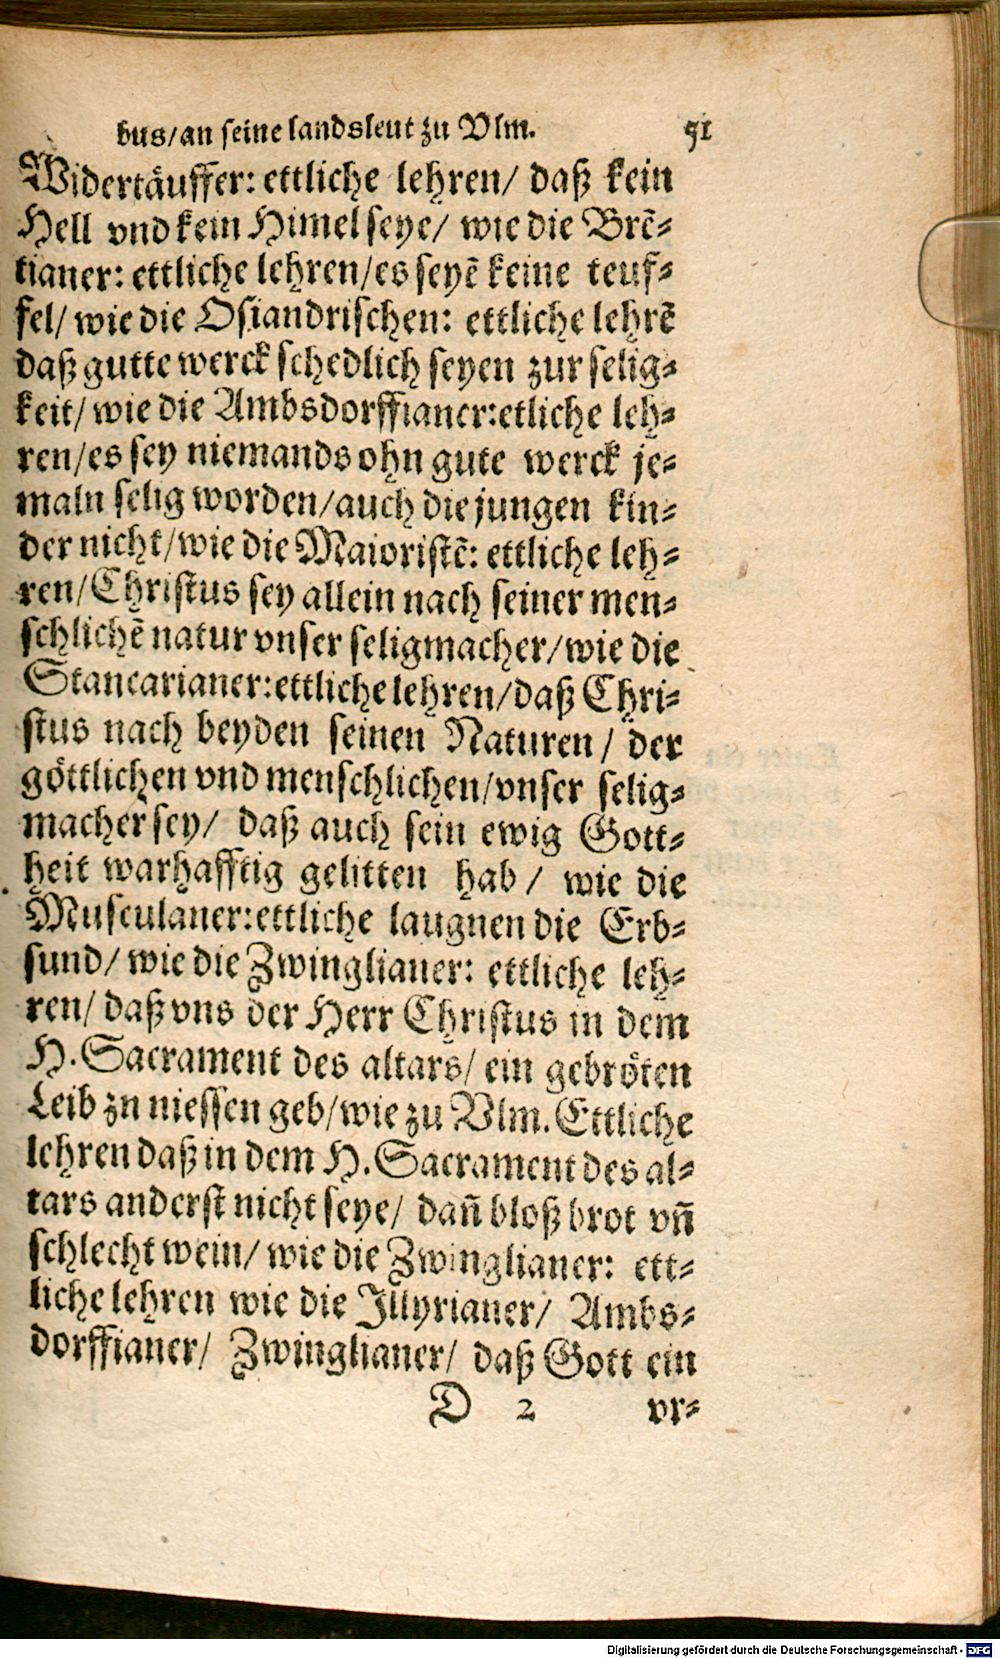 bus/an seine landsleut zu Vlm. 51
Widertäuffer: ettliche lehren/ daß kein
Hell vnd kein Himel seye/ wie die Brē⸗
tianer: ettliche lehren/es seyē keine teuf⸗
fel/ wie die Osiandrischen: ettliche lehrē
daß gutte werck schedlich seyen zur selig⸗
keit/ wie die Ambsdorffianer:etliche leh⸗
ren/es sey niemands ohn gute werck je⸗
maln selig worden/auch die jungen kin⸗
der nicht/wie die Maioristē: ettliche leh⸗
ren/Christus sey allein nach seiner men⸗
schlichē natur vnser seligmacher/wie die
Stancarianer:ettliche lehren/daß Chri⸗
stus nach beyden seinen Naturen/ der
göttlichen vnd menschlichen/vnser selig⸗
macher sey/ daß auch sein ewig Gott⸗
heit warhafftig gelitten hab/ wie die
Musculaner:ettliche laugnen die Erb⸗
sund/ wie die Zwinglianer: ettliche leh⸗
ren/ daß vns der Herr Christus in dem
H. Sacrament des altars/ ein gebröten
Leib zn niessen geb/wie zu Vlm. Ettliche
lehren daß in dem H. Sacrament des al⸗
tars anderst nicht seye/ dañ bloß brot vñ
schlecht wein/ wie die Zwinglianer: ett⸗
liche lehren wie die Illyrianer/ Ambs⸗
dorffianer/ Zwinglianer/ daß Gott ein
D 2 vr⸗
Digitalisierung gefördert durch die Deutsche Forschungsgemeinschaft - DFG